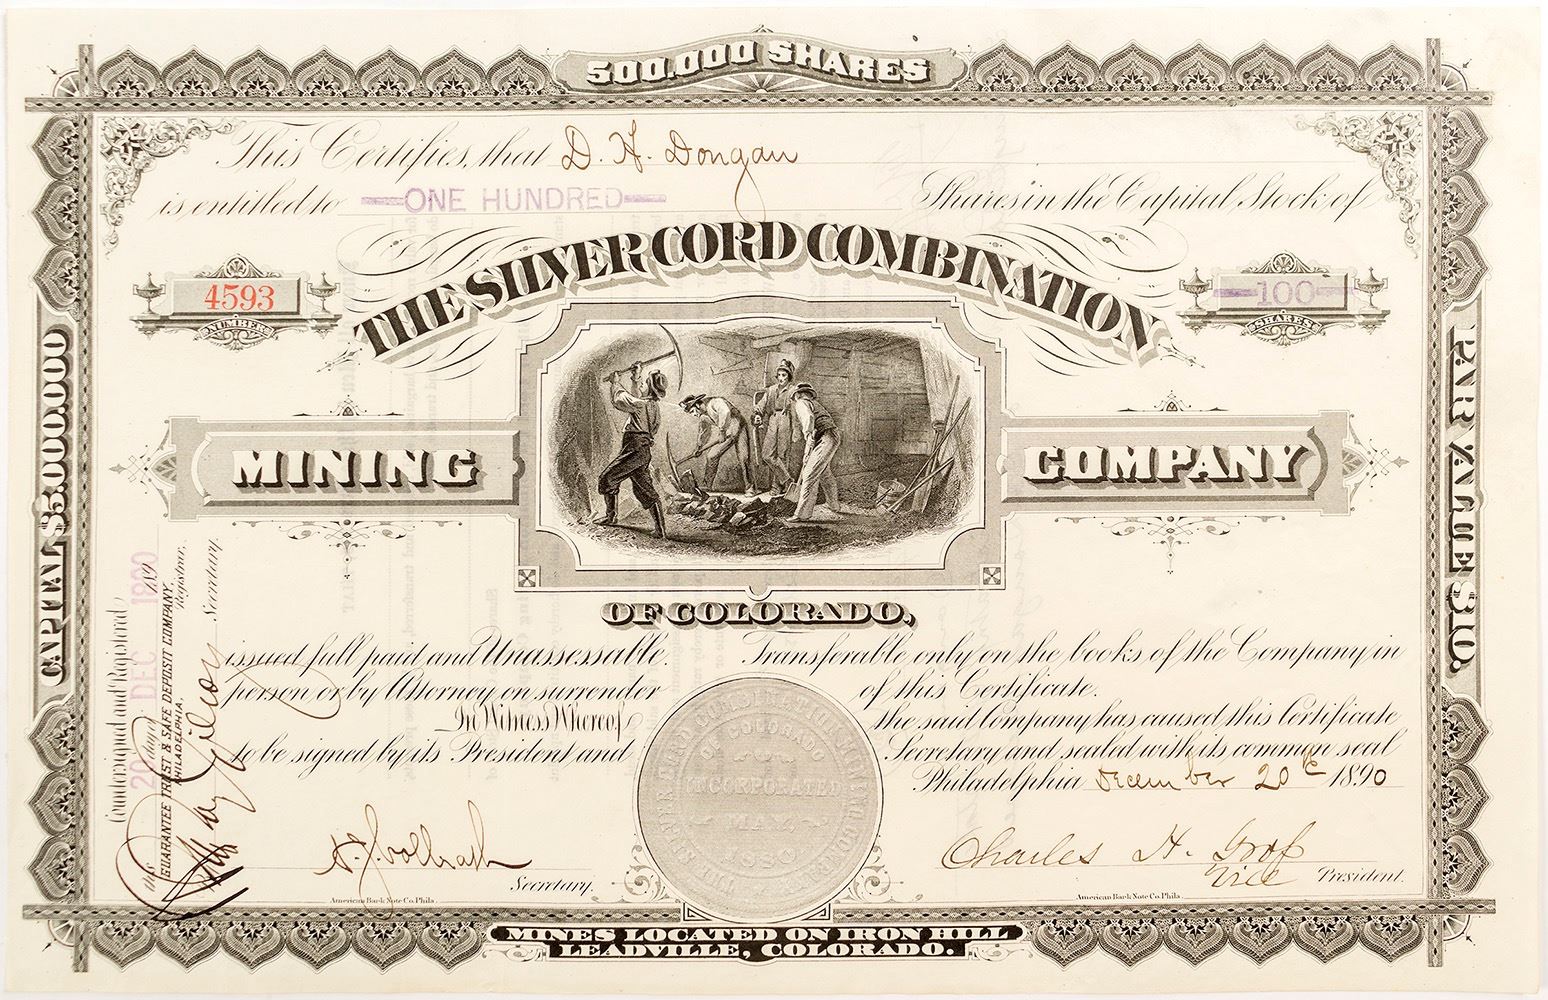 500,000 SHARES
This Certifies, that D. H. Dongan
is entitled to ONE HUNDRED Shares in the Capital Stock of
THE SILVER CORD COMBINATION
4593
NUMBER
100
SHARES
MINING COMPANY
OF COLORADO,
CAPITAL $5.000.000
PAR VALUE $10.
issued full paid and Unassessable. Transferable only on the books of the Company in
person or by Attorney on surrender of this Certificate.
In Witness Whereof, the said Company has caused this Certificate
to be signed by its President and Secretary and sealed with its common seal
Philadelphia December 20th 1890
Secretary.
Charles H. Grof
Vice President.
American Bank Note Co. Phila.
American Bank Note Co. Phila.
Countersigned and Registered,
this 20 day DEC 1890 189
GUARANTEE TRUST & SAFE DEPOSIT COMPANY,
PHILADELPHIA, Registrar,
Secretary.
OF COLORADO
INCORPORATED
MINES LOCATED ON IRON HILL
LEADVILLE, COLORADO.